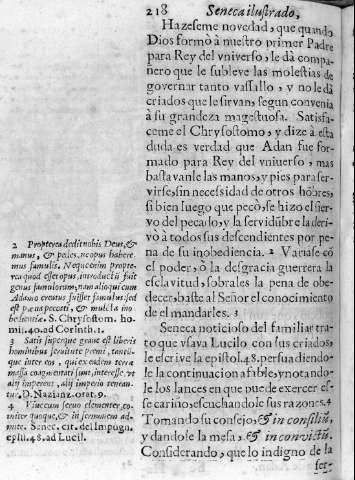 218 Seneca ilustrado,
Hazeseme novedad, que quando
Dios formò à nuestro primer Padre
para Rey del vniverso, le dà compa-
ñero que le subleve las molestias de
governar tanto vassallo, y no le dà
criados que le sirvan, segun convenia
à su grandeza magestuosa. Satisfa-
ceme el Chrysostomo, y dize à esta
duda es verdad que Adan fue for-
mado para Rey del vniverso, mas
bastavanle las manos, y pies para ser-
virse, sin necessidad de otros hõbres,
si bien luego que pecò, se hizo el sier-
vo del pecado, y la servidũbre la deri-
vò à todos sus descendientes por pe-
na de su inobediencia. 2 Variase cõ
el poder, ò la desgracia guerrera la
esclavitud, sobrales la pena de obe-
decer, baste al Señor el conocimiento
de el mandarles. 3
Seneca noticioso del familiar tra-
to que vsava Lucilo con sus criados,
le escrive la epistol. 48. persuadiendo-
le la continuacion afable, y notando-
le los lances en que puede exercer es-
se cariño, escuchandole sus razones. 4
Tomando su consejo, & in consiliũ,
y dandole la mesa, & in convictũ.
Considerando, que lo indigno de la
ser-
2 Propterea dedit nobis Deus, &
manus, & pedes, ne opus habere-
mus famulis. Neque enim propte-
rea quod esset opus, introductũ fuit
genus famulorum, nam alioqui cum
Adamo creatus fuisset famulus, sed
est pœna peccati, & mulcta ino-
bedientiæ. S. Chrysostom. ho-
mil. 40. ad Corinth. 1.
3 Satis superque grave est liberis
hominibus servitute premi, tantũ-
que inter eos, qui ex eadem terræ
massa coagmentati sunt, interesse, vt
alij imperent, alij imperio tenean-
tur, D. Nazianz. orat. 9.
4 Vive cum servo clementer, co-
miter quoque, & in sermonem ad-
mitte. Senec. cit. del Impugn.
epist. 48. ad Lucil.